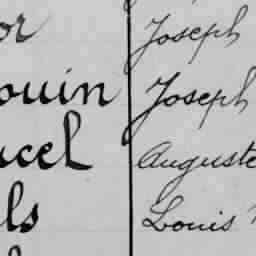 or Joseph
ouin Joseph
ucel Auguste
ls Louis